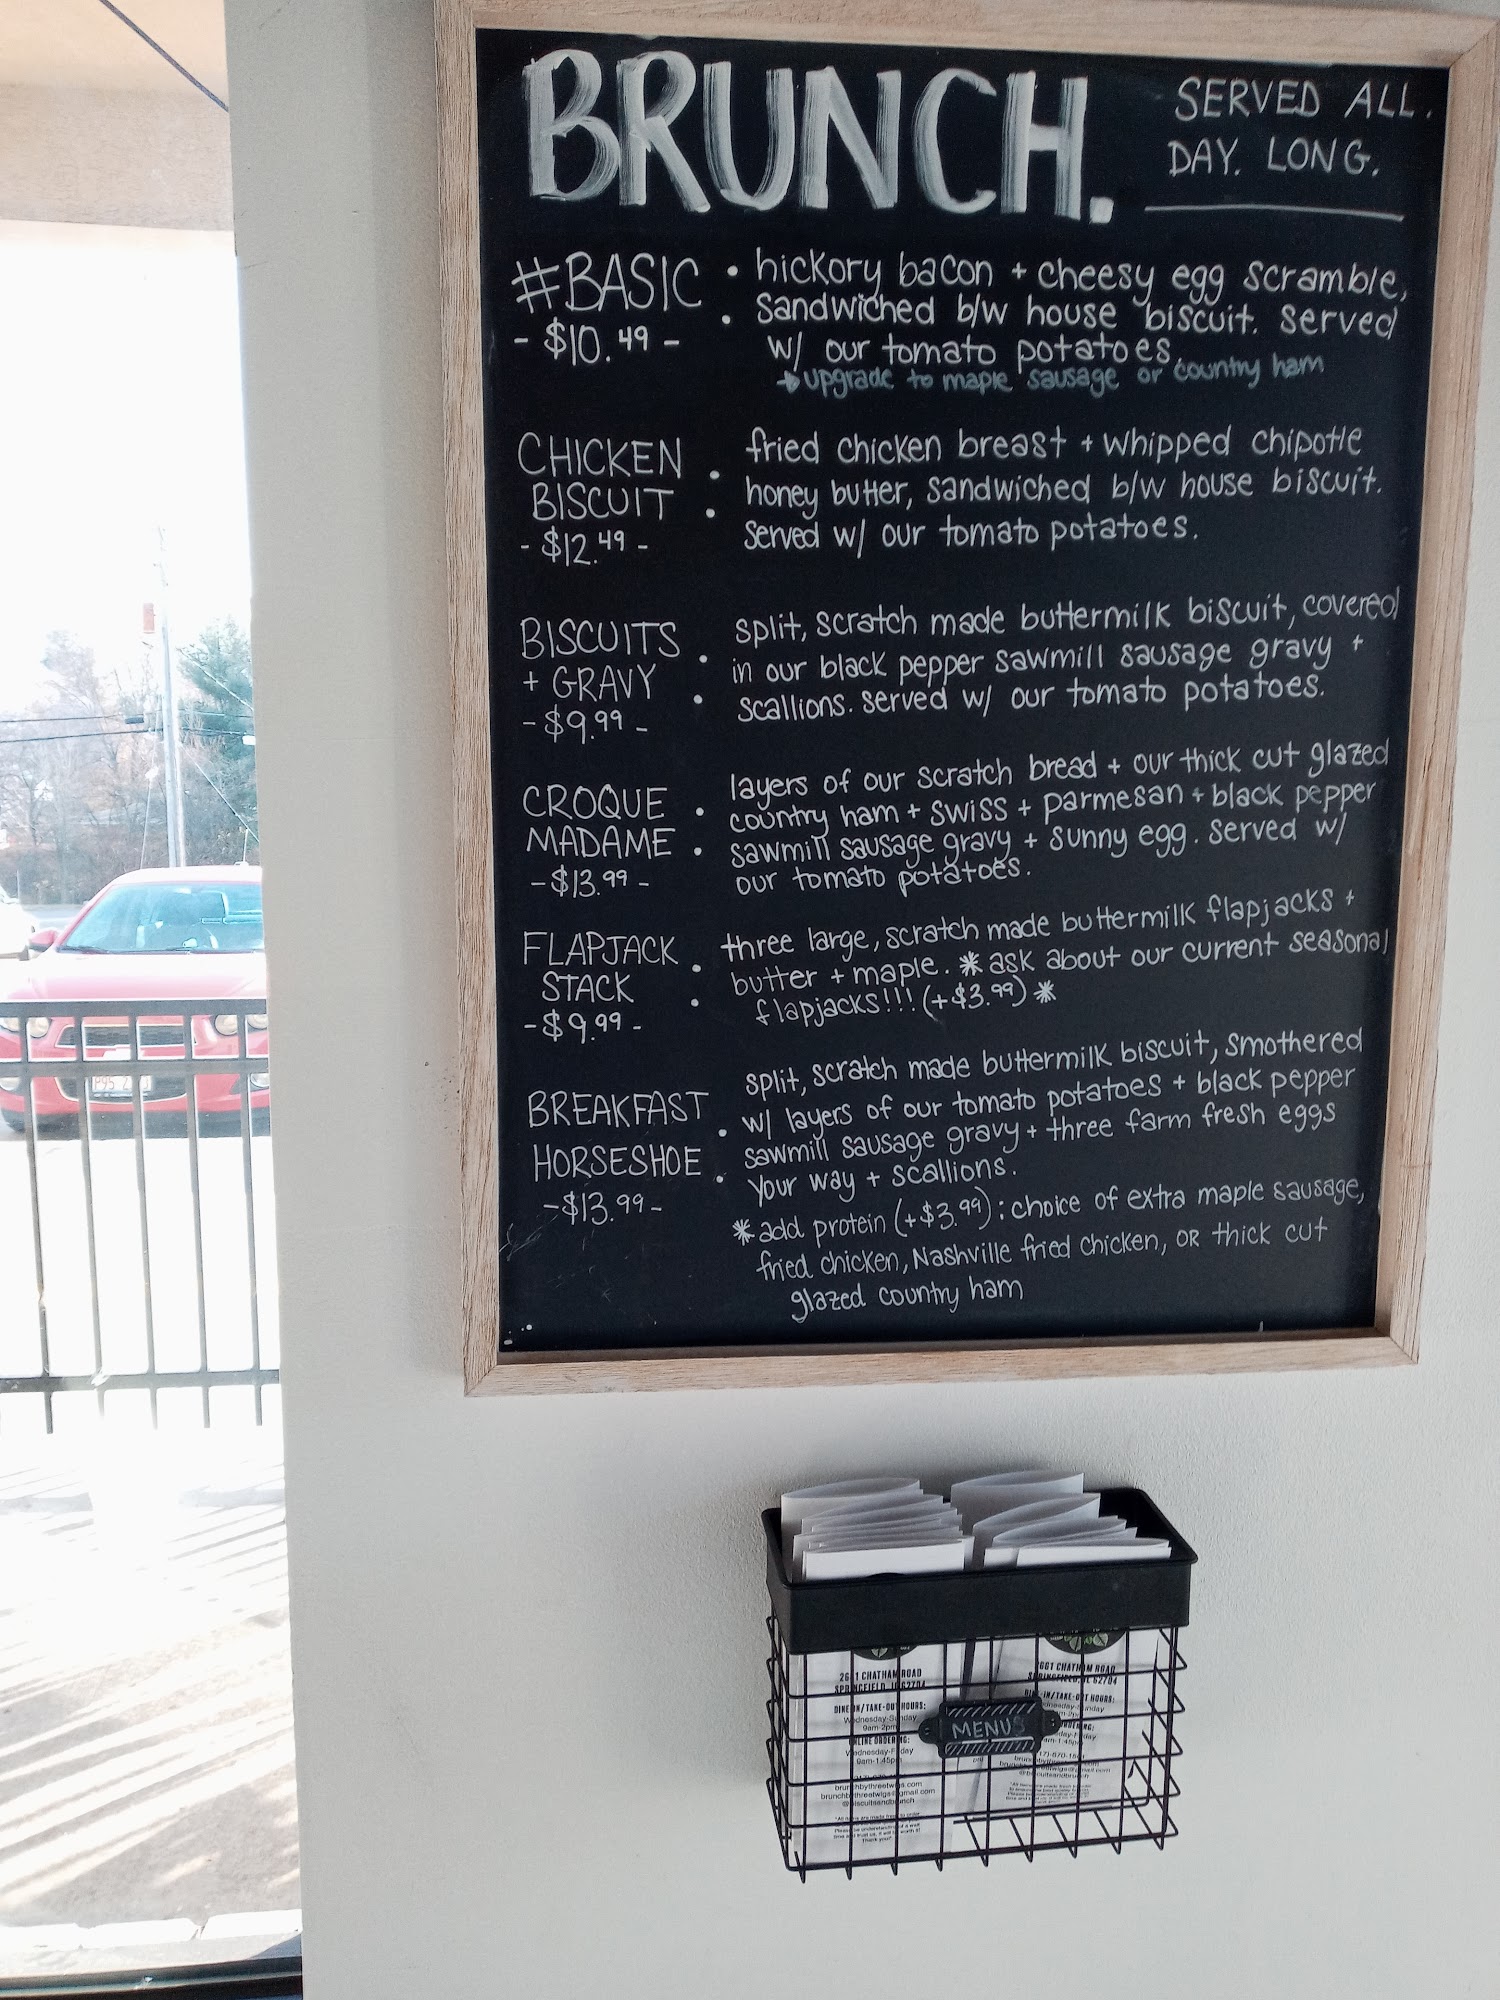 BRUNCH.
SERVED ALL.
DAY. LONG.
#BASIC
- $10.49 -
hickory bacon + cheesy egg scramble,
sandwiched b/w house biscuit. served
w/ our tomato potatoes.
upgrade to maple sausage or country ham
CHICKEN
BISCUIT
- $12.49 -
fried chicken breast + whipped chipotle
honey butter, sandwiched b/w house biscuit.
served w/ our tomato potatoes.
BISCUITS
+ GRAVY
- $9.99 -
split, scratch made buttermilk biscuit, covered
in our black pepper sawmill sausage gravy +
scallions. served w/ our tomato potatoes.
CROQUE
MADAME
- $13.99 -
layers of our scratch bread + our thick cut glazed
country ham + swiss + parmesan + black pepper
sawmill sausage gravy + sunny egg. served w/
our tomato potatoes.
FLAPJACK
STACK
- $9.99 -
three large, scratch made buttermilk flapjacks +
butter + maple. * ask about our current seasonal
flapjacks!!! (+$3.99) *
BREAKFAST
HORSESHOE
- $13.99 -
split, scratch made buttermilk biscuit, smothered
w/ layers of our tomato potatoes + black pepper
sawmill sausage gravy + three farm fresh eggs
your way + scallions.
* add protein (+$3.99): choice of extra maple sausage,
fried chicken, Nashville fried chicken, OR thick cut
glazed country ham
CHATHAM ROAD
SPRINGFIELD, IL 62704
DINE-IN/TAKE-OUT HOURS:
Wednesday-Sunday
9am-2pm
ONLINE ORDERING:
Wednesday-Friday
9am-1:45pm
brunchbythreetwigs.com
brunchbythreetwigs@gmail.com
@biscuitsandbrunch
2661 CHATHAM ROAD
SPRINGFIELD, IL 62704
DINE-IN/TAKE-OUT HOURS:
MENUS